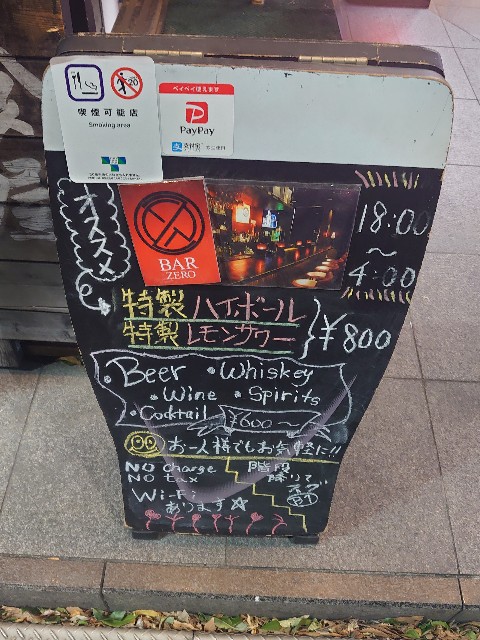 喫煙可能店
Smoking area
20
ペイペイ使えます
PayPay
支付宝
オススメ
BAR
ZERO
18:00
〜
4:00
特製ハイボール
特製レモンサワー
¥800
・Beer ・Whiskey
・Wine ・Spirits
・Cocktail ¥600〜
お一人様でもお気軽に!!
NO charge
NO tax
Wi-Fi
あります☆
階段
降りて
スグ